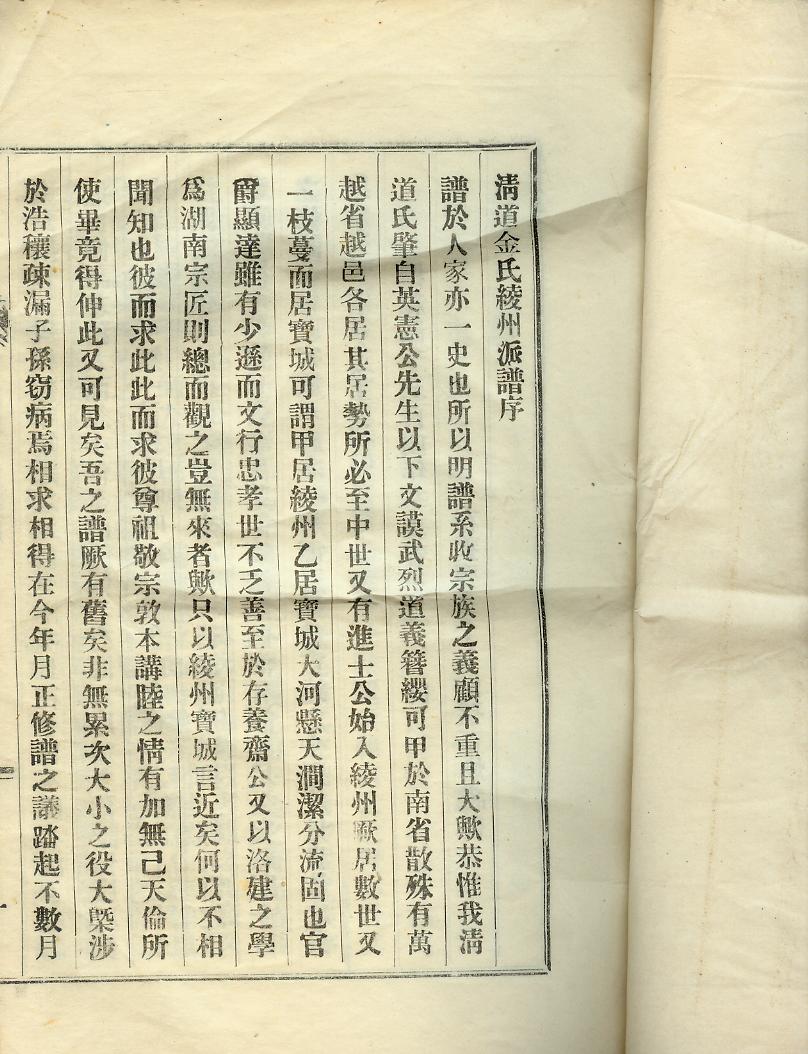 清道金氏綾州派譜序
譜於人家亦一史也所以明譜系收宗族之義顧不重且大歟恭惟我淸
道氏肇自英憲公先生以下文謨武烈道義簪纓可甲於南省散殊有萬
越省越邑各居其居勢所必至中世又有進士公始入綾州厥居數世又
一枝蔓而居寶城可謂甲居綾州乙居寶城大河懸天澗潔分流固也官
爵顯達雖有少遜而文行忠孝世不乏善至於存養齋公又以洛建之學
爲湖南宗匠則總而觀之豈無來者歟只以綾州寶城言近矣何以不相
聞知也彼而求此此而求彼尊祖敬宗敦本講睦之情有加無已天倫所
使畢竟得伸此又可見矣吾之譜厥有舊矣非無累次大小之役大槩涉
於浩穰疎漏子孫窃病焉相求相得在今年月正修譜之議踏起不數月